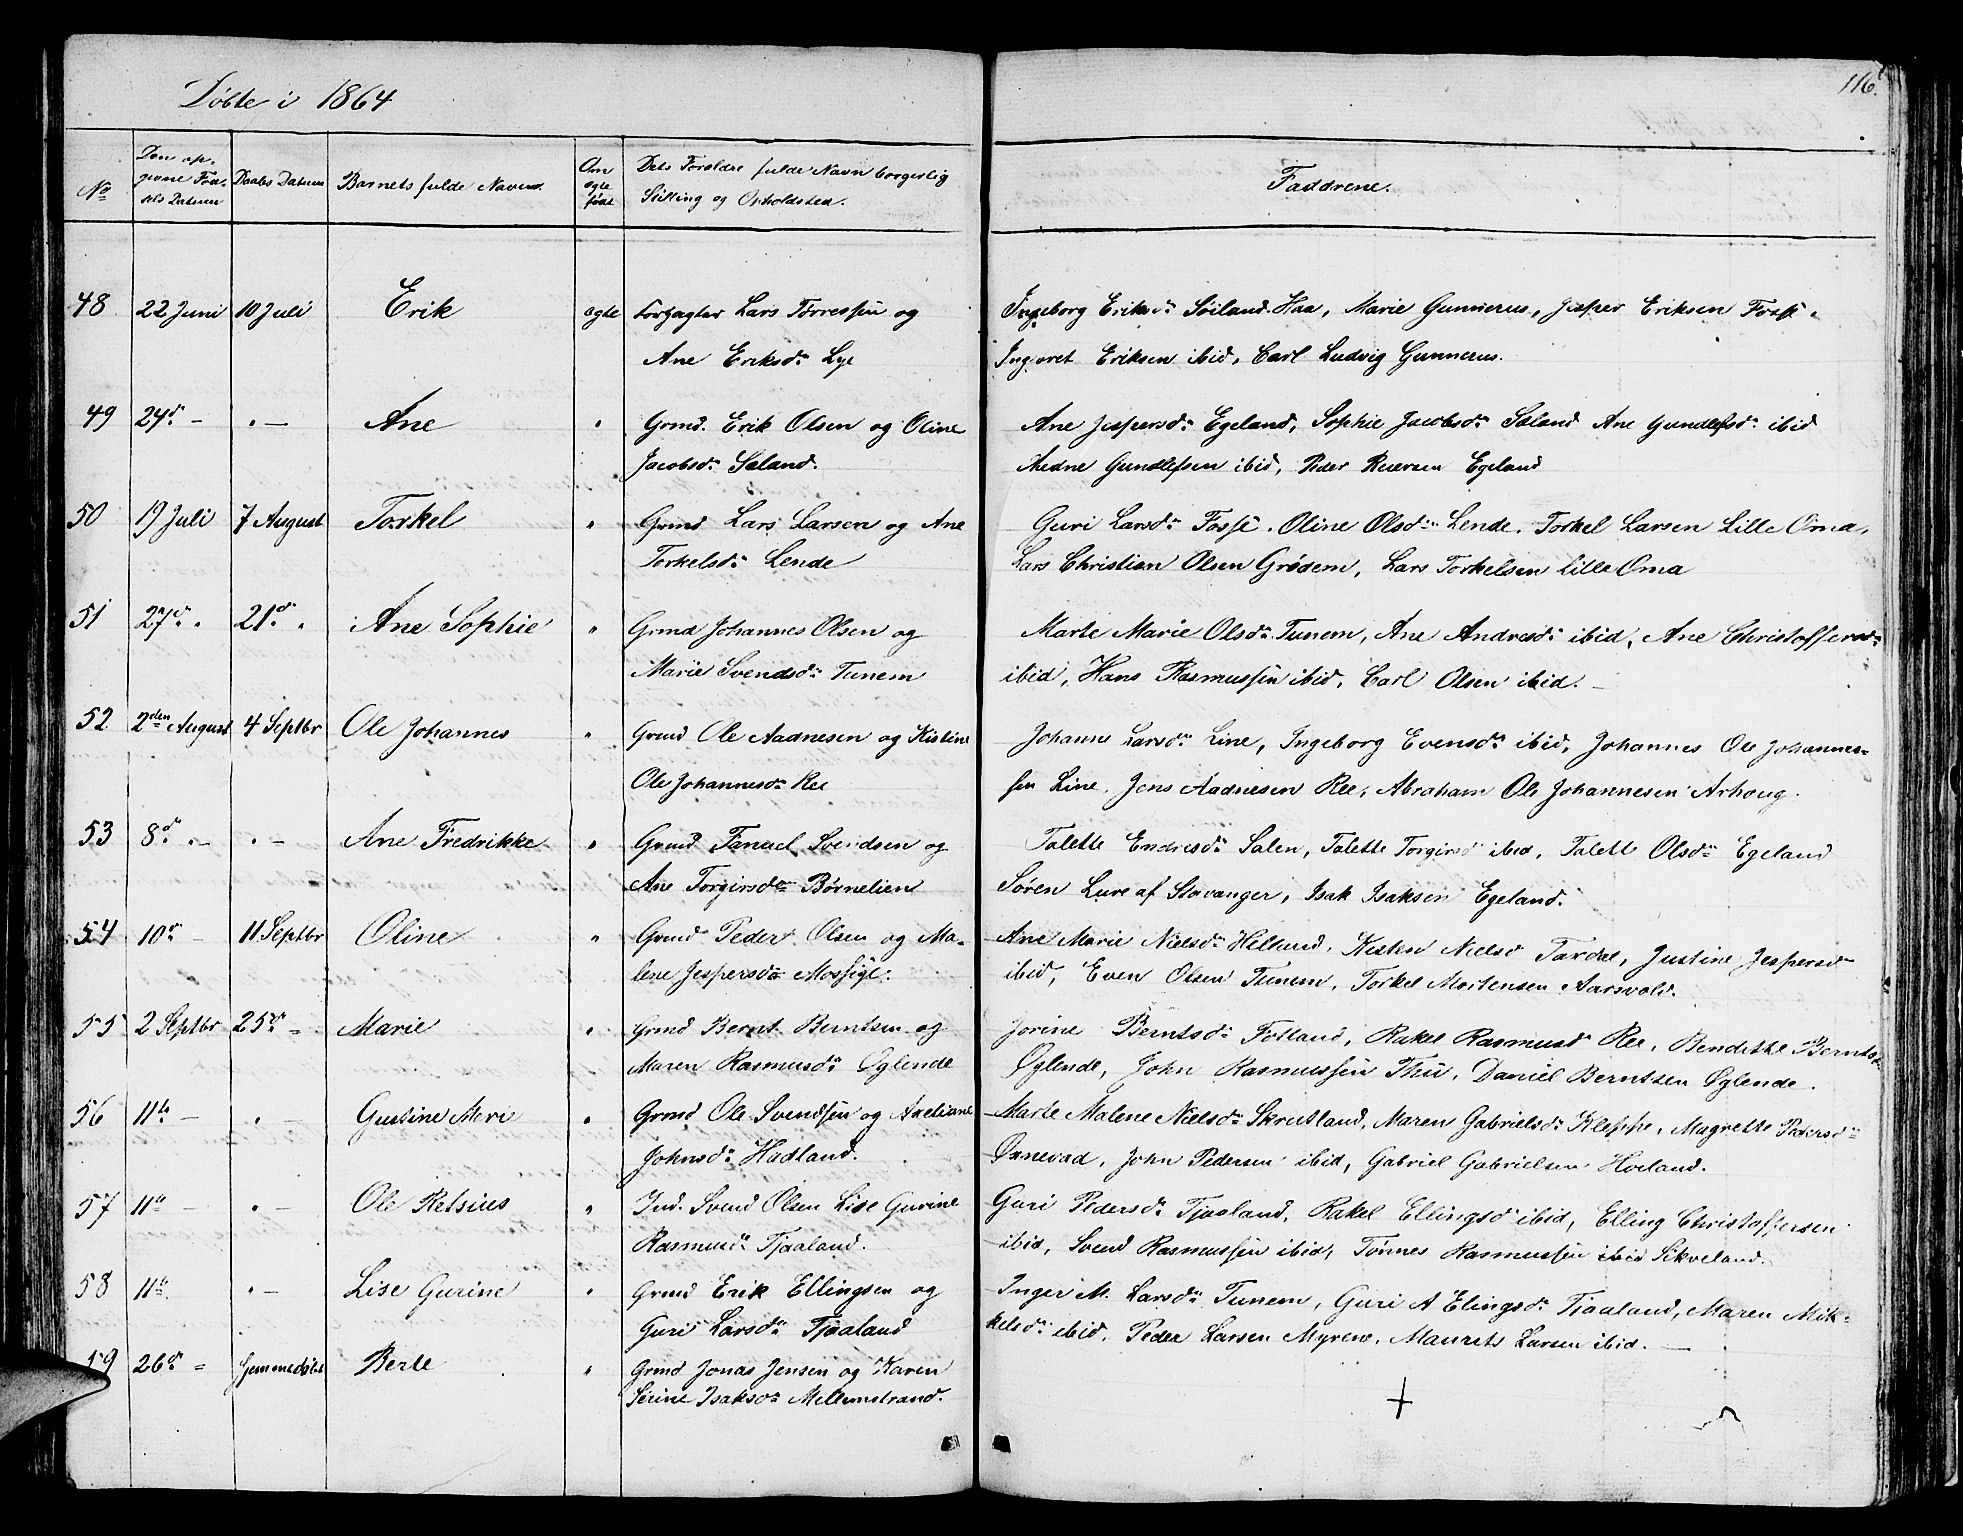 Døbte i 1864
116.
No
Den op-
givne Fød-
sels Datum
Daabs Datum
Barnets fulde Navn.
Om
ægte
født
Dets Foreldre fulde Navn borgerlig
Stilling og Opholdsted.
Faddrene.
48 22 Juni 10 Juli Erik ægte Forpagter Lars Tørressen og
Ane Eriksdr Lye
Ingeborg Eriksdr Søiland Haa, Marie Gunnerus, Jesper Eriksen Fosse,
Eriksen ibid, Carl Ludvig Gunnerus.
49 24de - " - Ane " Grmd. Erik Olsen og Oline
Jacobsdr Saland.
Ane Jespersdr Egeland, Sophie Jacobsdr Saland Ane Gundlefsdr ibid
Aadne Gundlefsen ibid, Peder Reiersen Egeland
50 19 Juli 7 August Torkel " Grmd Lars Larsen og Ane
Torkelsdr Lende
Guri Larsdr Fosse, Oline Olsdr Lende, Torkel Larsen Lille Oma,
Lars Christian Olsen Grødem, Lars Torkelsen Lille Oma
51 27de " 21de " Ane Sophie " Grmd Johannes Olsen og
Marie Svendsdr Tunem
Marte Marie Olsdr Tunem, Ane Andresdr ibid, Ane Christoffersdr
ibid, Hans Rasmussen ibid, Carl Olsen ibid. -
52 2den August 4 Septbr Ole Johannes " Grmd Ole Aadnesen og Kistine
Ole Johannesdr Ree
Johanne Larsdr Line, Ingeborg Evensdr ibid, Johannes Ole Johannes-
sen Line, Jens Aadnesen Ree, Abraham Ole Johannesen Arhoug.
53 8de " - " - Ane Fredrikke " Grmd Fanuel Svendsen og
Ane Torgirsdr Børnelien
Talette Endresdr Salen, Talette Torgirsd ibid, Talette Olsdr Egeland
Søren Lure af Stavanger, Isak Isaksen Egeland.
54 10de - 11 Septbr Oline " Grmd Peder Olsen og Ma-
lene Jespersdr Mossige.
Ane Marie Nielsdr Helland, Kisten Nielsd Taxdal, Justine Jespersd
ibid, Even Olsen Tunem, Torkel Mortensen Aarsvold.
55 2 Septbr 25de - Marie " Grmd Bernt Berntsen og
Maren Rasmusdr Øglende
Jorine Berntsdr Fotland, Rakel Rasmusd Ree, Benditte Berntsdr
Øglende, John Rasmussen Thu, Daniel Berntsen Øglende.
56 11te - " - Gustine Meri " Grmd Ole Svendsen og Axeliane
Johnsdr Hadland.
Marte Malene Nielsdr Skrutland, Maren Gabrielsdr Kleppe, Magrette Pedersdr
Øxnevad, John Pedersen ibid, Gabriel Gabrielsen Hoiland.
57 11te - " - Ole Retsius " Ind. Svend Olsen Lise Gurine
Rasmusdr Tjaaland.
Guri Pedersdr Tjaaland, Rakel Ellingsd ibid, Elling Christoffersen
ibid, Svend Rasmussen ibid, Tønnes Rasmussen ibid Sikveland.
58 11te " - Lise Gurine " Grmd Erik Ellingsen og
Guri Larsdr Tjaaland
Inger M. Larsdr Tunem, Guri A Elingsdr Tjaaland, Maren Mik-
kelsdr ibid, Peder Larsen Myren, Maurits Larsen ibid. -
59 26de - hjemmedøbt Berte " Grmd Jonas Jensen og Karen
Serine Isaksdr Mellemstrand.